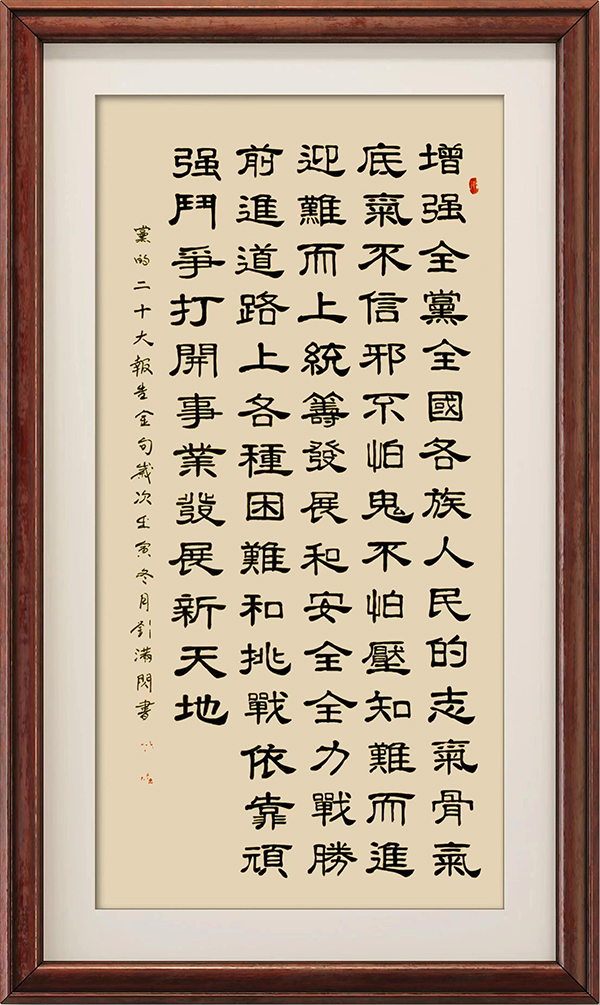 增强全黨全國各族人民的志氣骨氣
底氣不信邪不怕鬼不怕壓知難而進
迎難而上統籌發展和安全全力戰勝
前進道路上各種困難和挑戰依靠頑
强鬥爭打開事業發展新天地
黨的二十大報告金句歲次壬寅冬月劉滿閃書